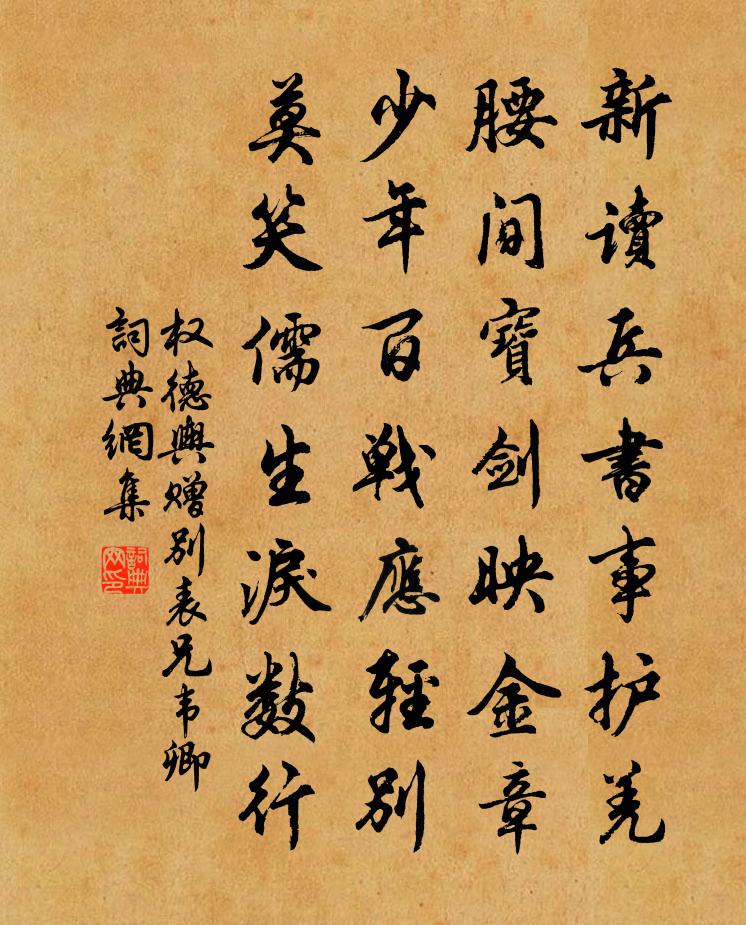 新讀兵書事护羌
腰間寶劍映金章
少年百戰應輕別
莫笑儒生淚數行
权德輿赠别表兄韦卿
詞典網集
詞典网印